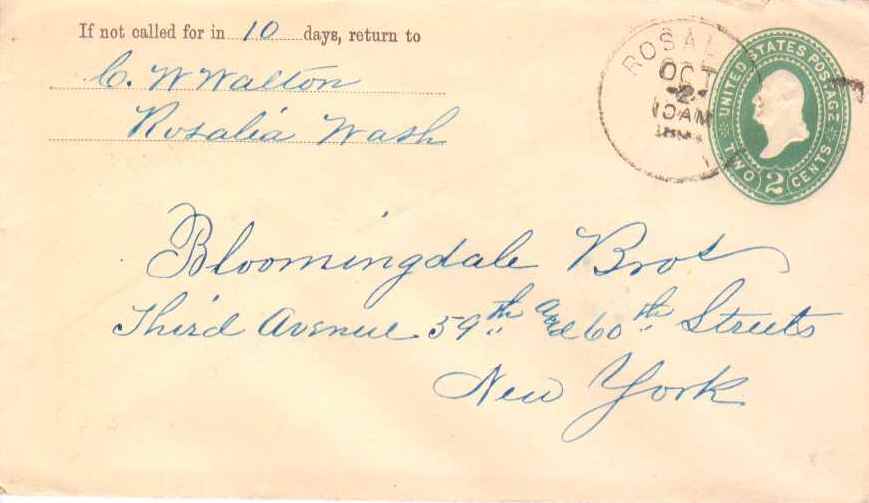 If not called for in 10 days, return to
C. W Walton
Rosalia Wash
ROSAL
OCT
2
10AM
UNITED STATES POSTAGE
TWO 2 CENTS
Bloomingdale Bros
Third Avenue 59th and 60th Streets
New York